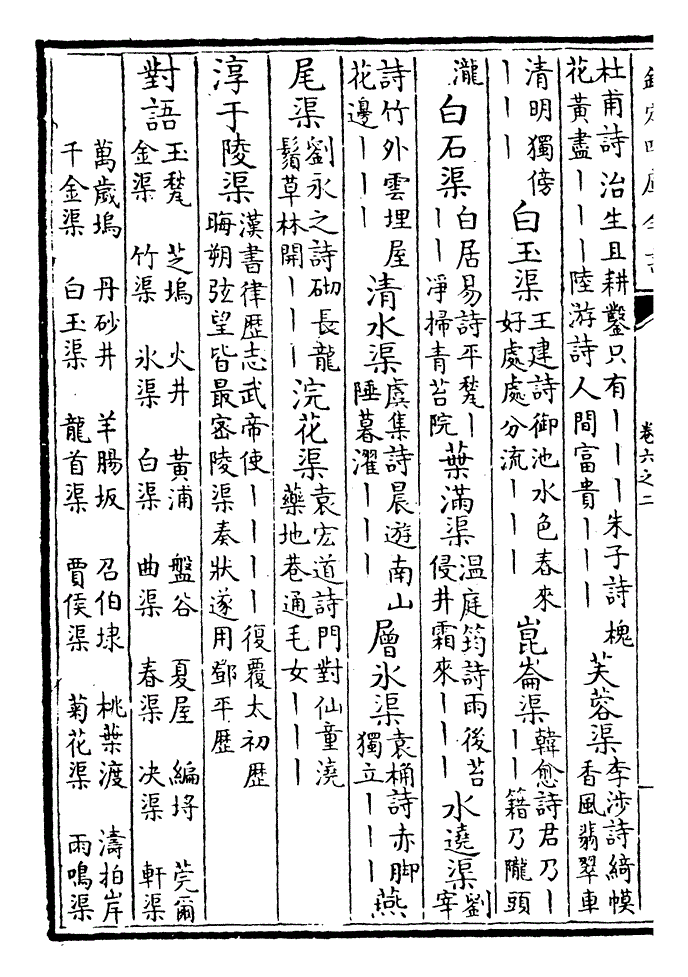 欽定四庫全書 卷六之二
杜甫詩治生且耕鑿只有丨丨丨朱子詩槐花黃盡丨丨丨陸游詩人間富貴丨丨丨 芙蓉渠 李涉詩綺幙香風翡翠車
清明獨傍丨丨丨 白玉渠 王建詩御池水色春來好處處分流丨丨丨 崑崙渠 韓愈詩君乃丨丨丨籍乃隴頭
瀧 白石渠 白居易詩平甃丨丨丨淨掃青苔院 葉滿渠 温庭筠詩雨後苔侵井霜來丨丨丨 水遶渠 劉宰
詩竹外雲埋屋花邊丨丨丨 清水渠 虞集詩晨遊南山陲暮濯丨丨丨 層氷渠 袁桷詩赤脚獨立丨丨丨 燕
尾渠 劉永之詩砌長龍鬚草林開丨丨丨 浣花渠 袁宏道詩門對仙童澆藥地巷通毛女丨丨丨
淳于陵渠 漢書律歷志武帝使丨丨丨丨復覆太初歷晦朔弦望皆最密陵渠奏狀遂用鄧平歷
對語 玉甃 芝塢 火井 黃浦 盤谷 夏屋 編埒 莞爾
金渠 竹渠 氷渠 白渠 曲渠 春渠 决渠 軒渠
萬歲塢 丹砂井 羊腸坂 召伯埭 桃葉渡 濤拍岸
千金渠 白玉渠 龍首渠 賈侯渠 菊花渠 雨鳴渠